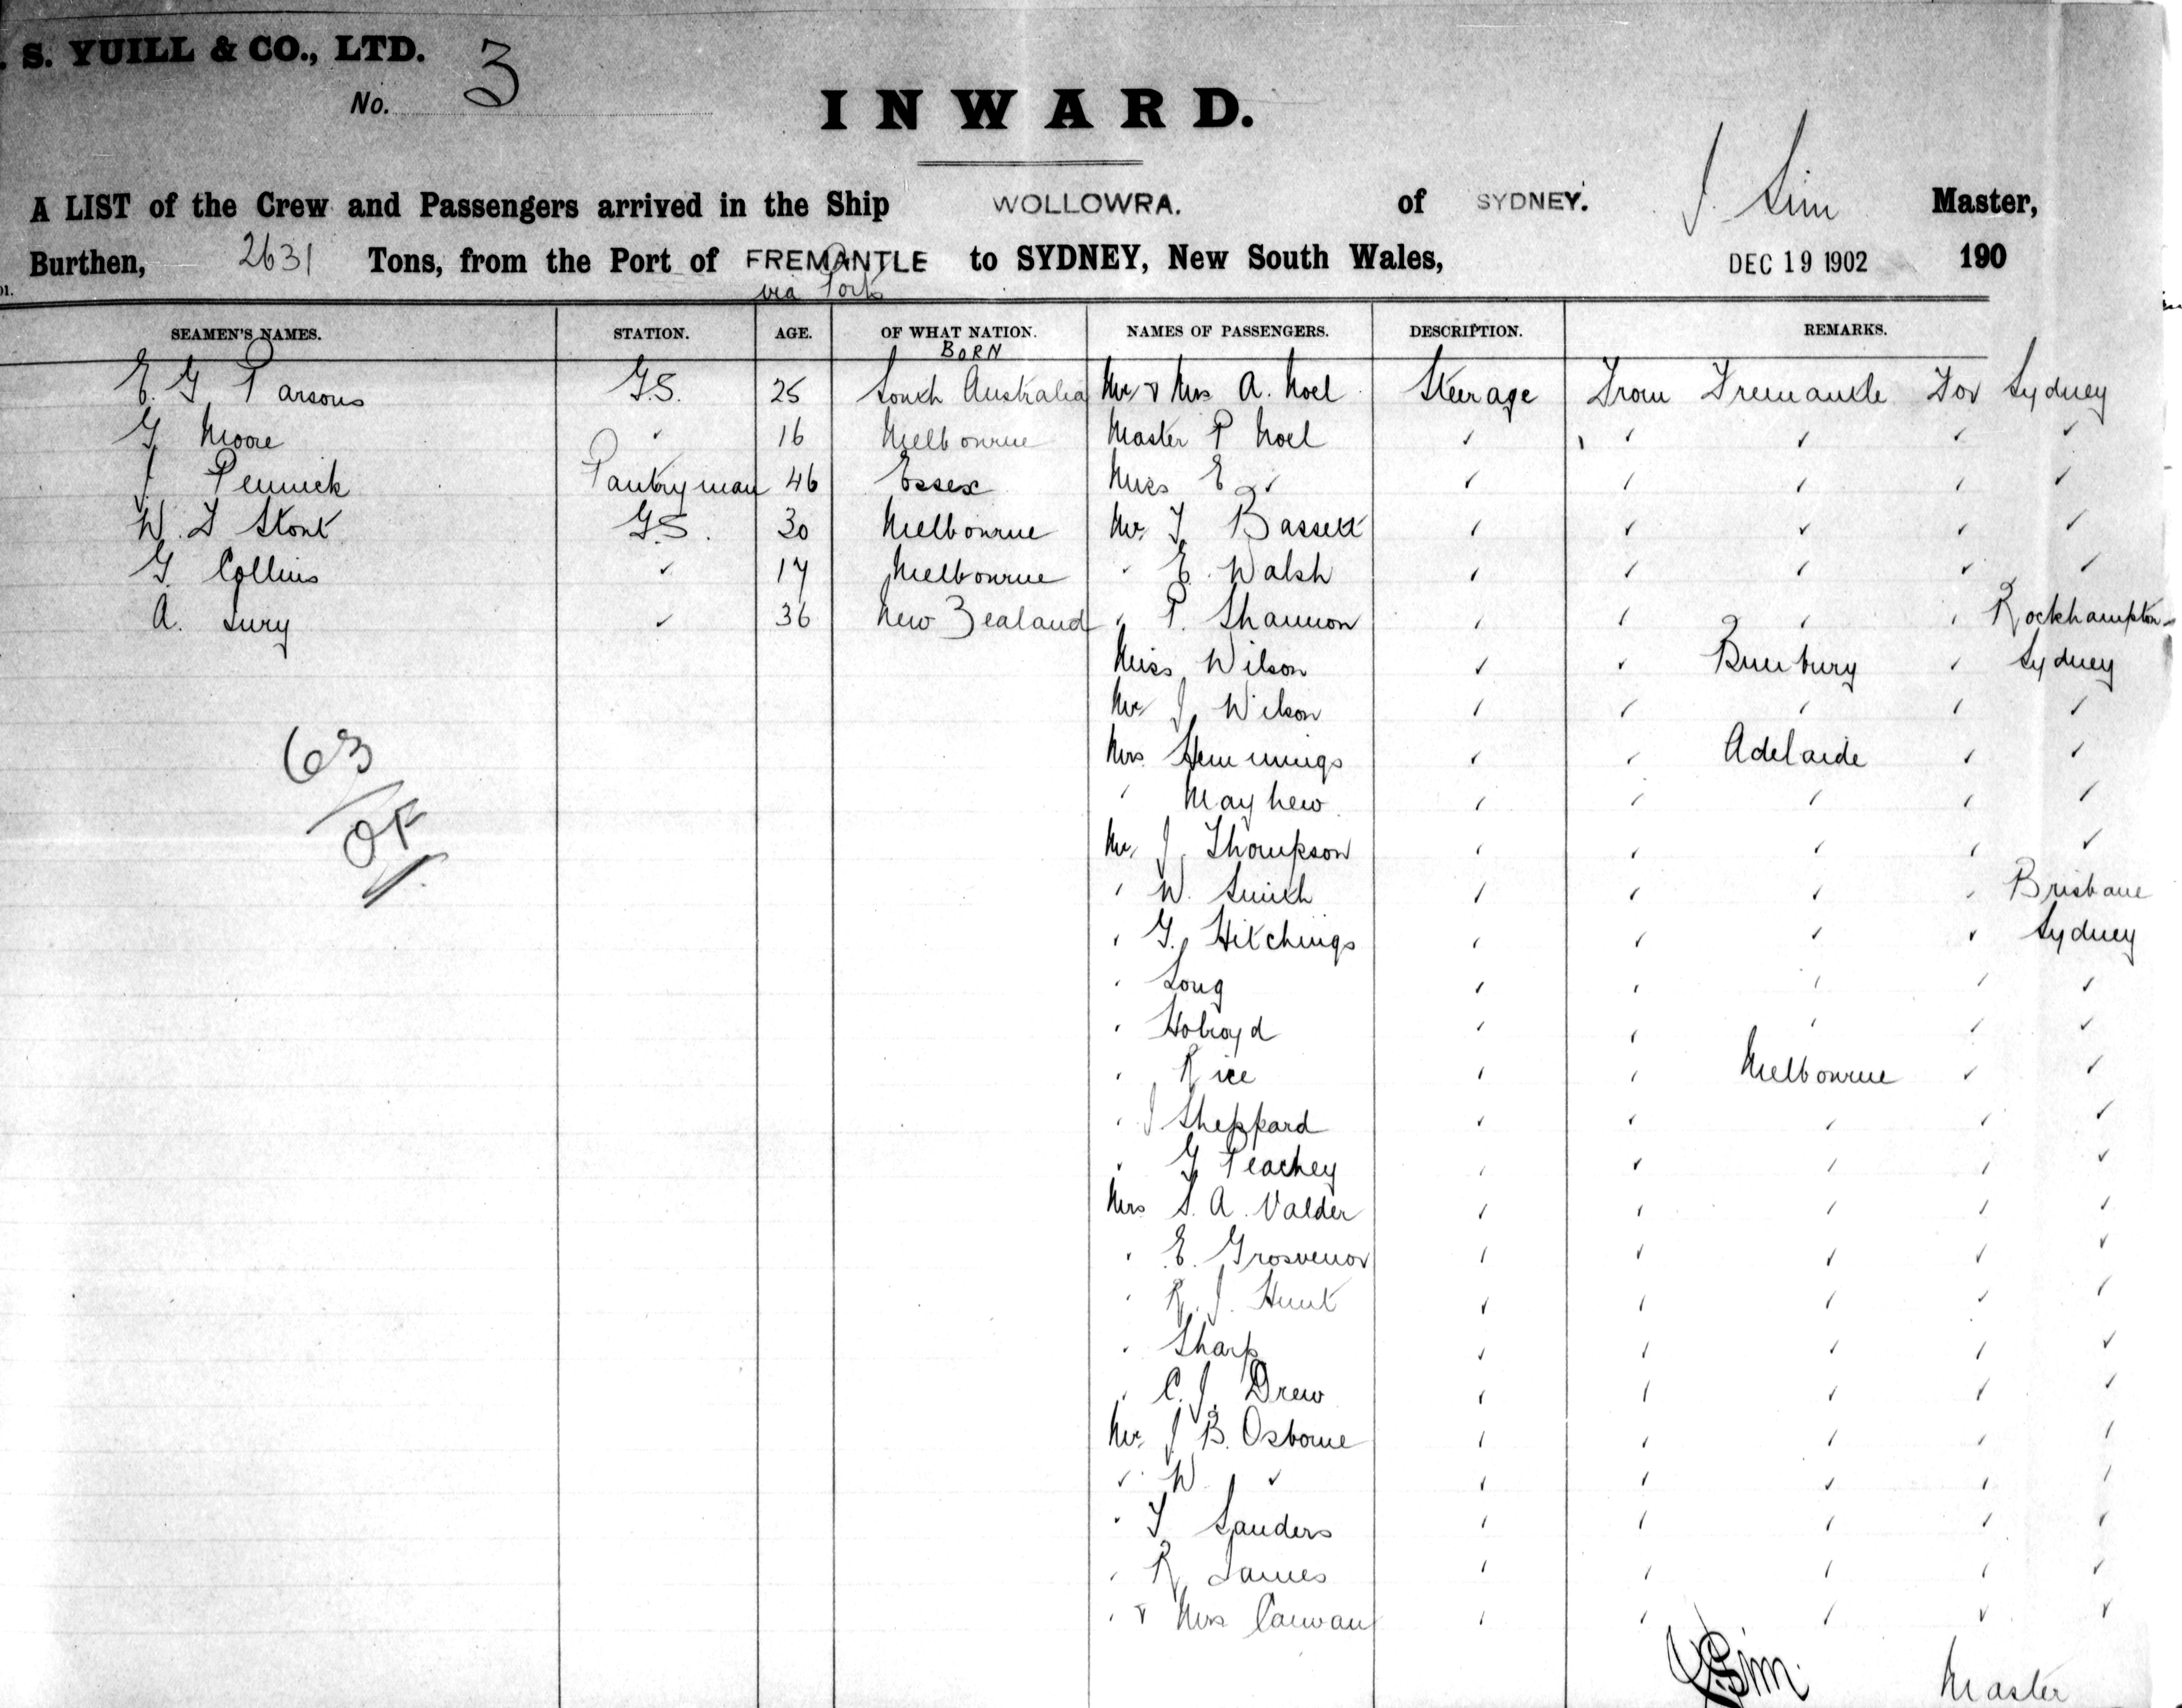 . S. YUILL & CO., LTD.
No. 3
INWARD.
A LIST of the Crew and Passengers arrived in the Ship WOLLOWRA. of SYDNEY. J. Sim Master,
Burthen, 2631 Tons, from the Port of FREMANTLE to SYDNEY, New South Wales, DEC 19 1902 190
via Ports
SEAMEN'S NAMES. STATION. AGE. OF WHAT NATION. NAMES OF PASSENGERS. DESCRIPTION. REMARKS.
BORN
E. G Parsons G.S. 25 South Australia Mr & Mrs A. Noel Steerage From Fremantle For Sydney
G Moore " 16 Melbourne Master P Noel " " " " "
J. Pennick Pantryman 46 Essex Miss E " " " " " "
W. F Stont G.S. 30 Melbourne Mr. F Bassett " " " " "
G. Collins " 17 Melbourne " E. Walsh " " " " "
A. Lury " 36 New Zealand " P. Shannon " " " " Rockhampton
Miss Wilson " " Bunbury " Sydney
Mr J Wilson " " " " "
Mrs. Hemmings " " Adelaide " "
63 " Mayhew " " " " "
OF Mr. J. Thompson " " " " "
" W. Smith " " " " Brisbane
" G. Hitchings " " " " Sydney
" Long " " " " "
" Holroyd " " " " "
" Rice " " Melbourne " "
" J Sheppard " " " " "
" G Peachey " " " " "
Mrs S. A. Valder " " " " "
" E. Grosvenor " " " " "
" R. J. Hunt " " " " "
" Sharp " " " " "
" C. J. Drew " " " " "
Mr. J B. Osborne " " " " "
" W. " " " " " "
" F Sanders " " " " "
" R James " " " " "
" & Mrs " " " " "
J. Sim. Master